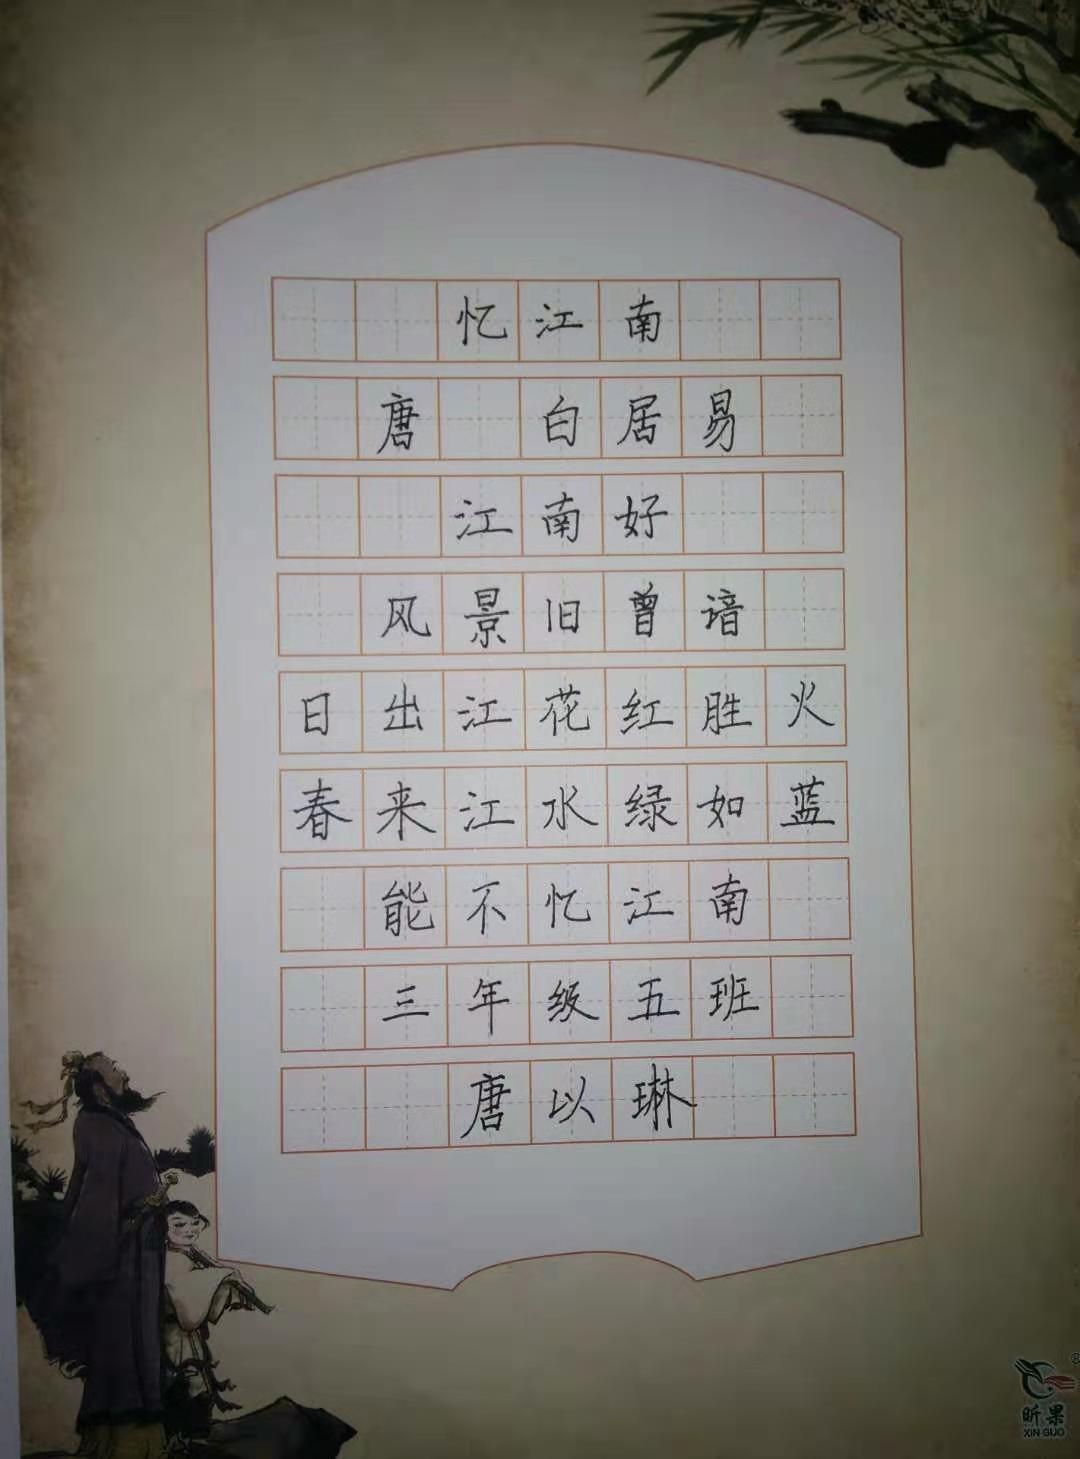 忆江南
唐 白居易
江南好
风景旧曾谙
日出江花红胜火
春来江水绿如蓝
能不忆江南
三年级五班
唐以琳
®
昕果
XIN GUO